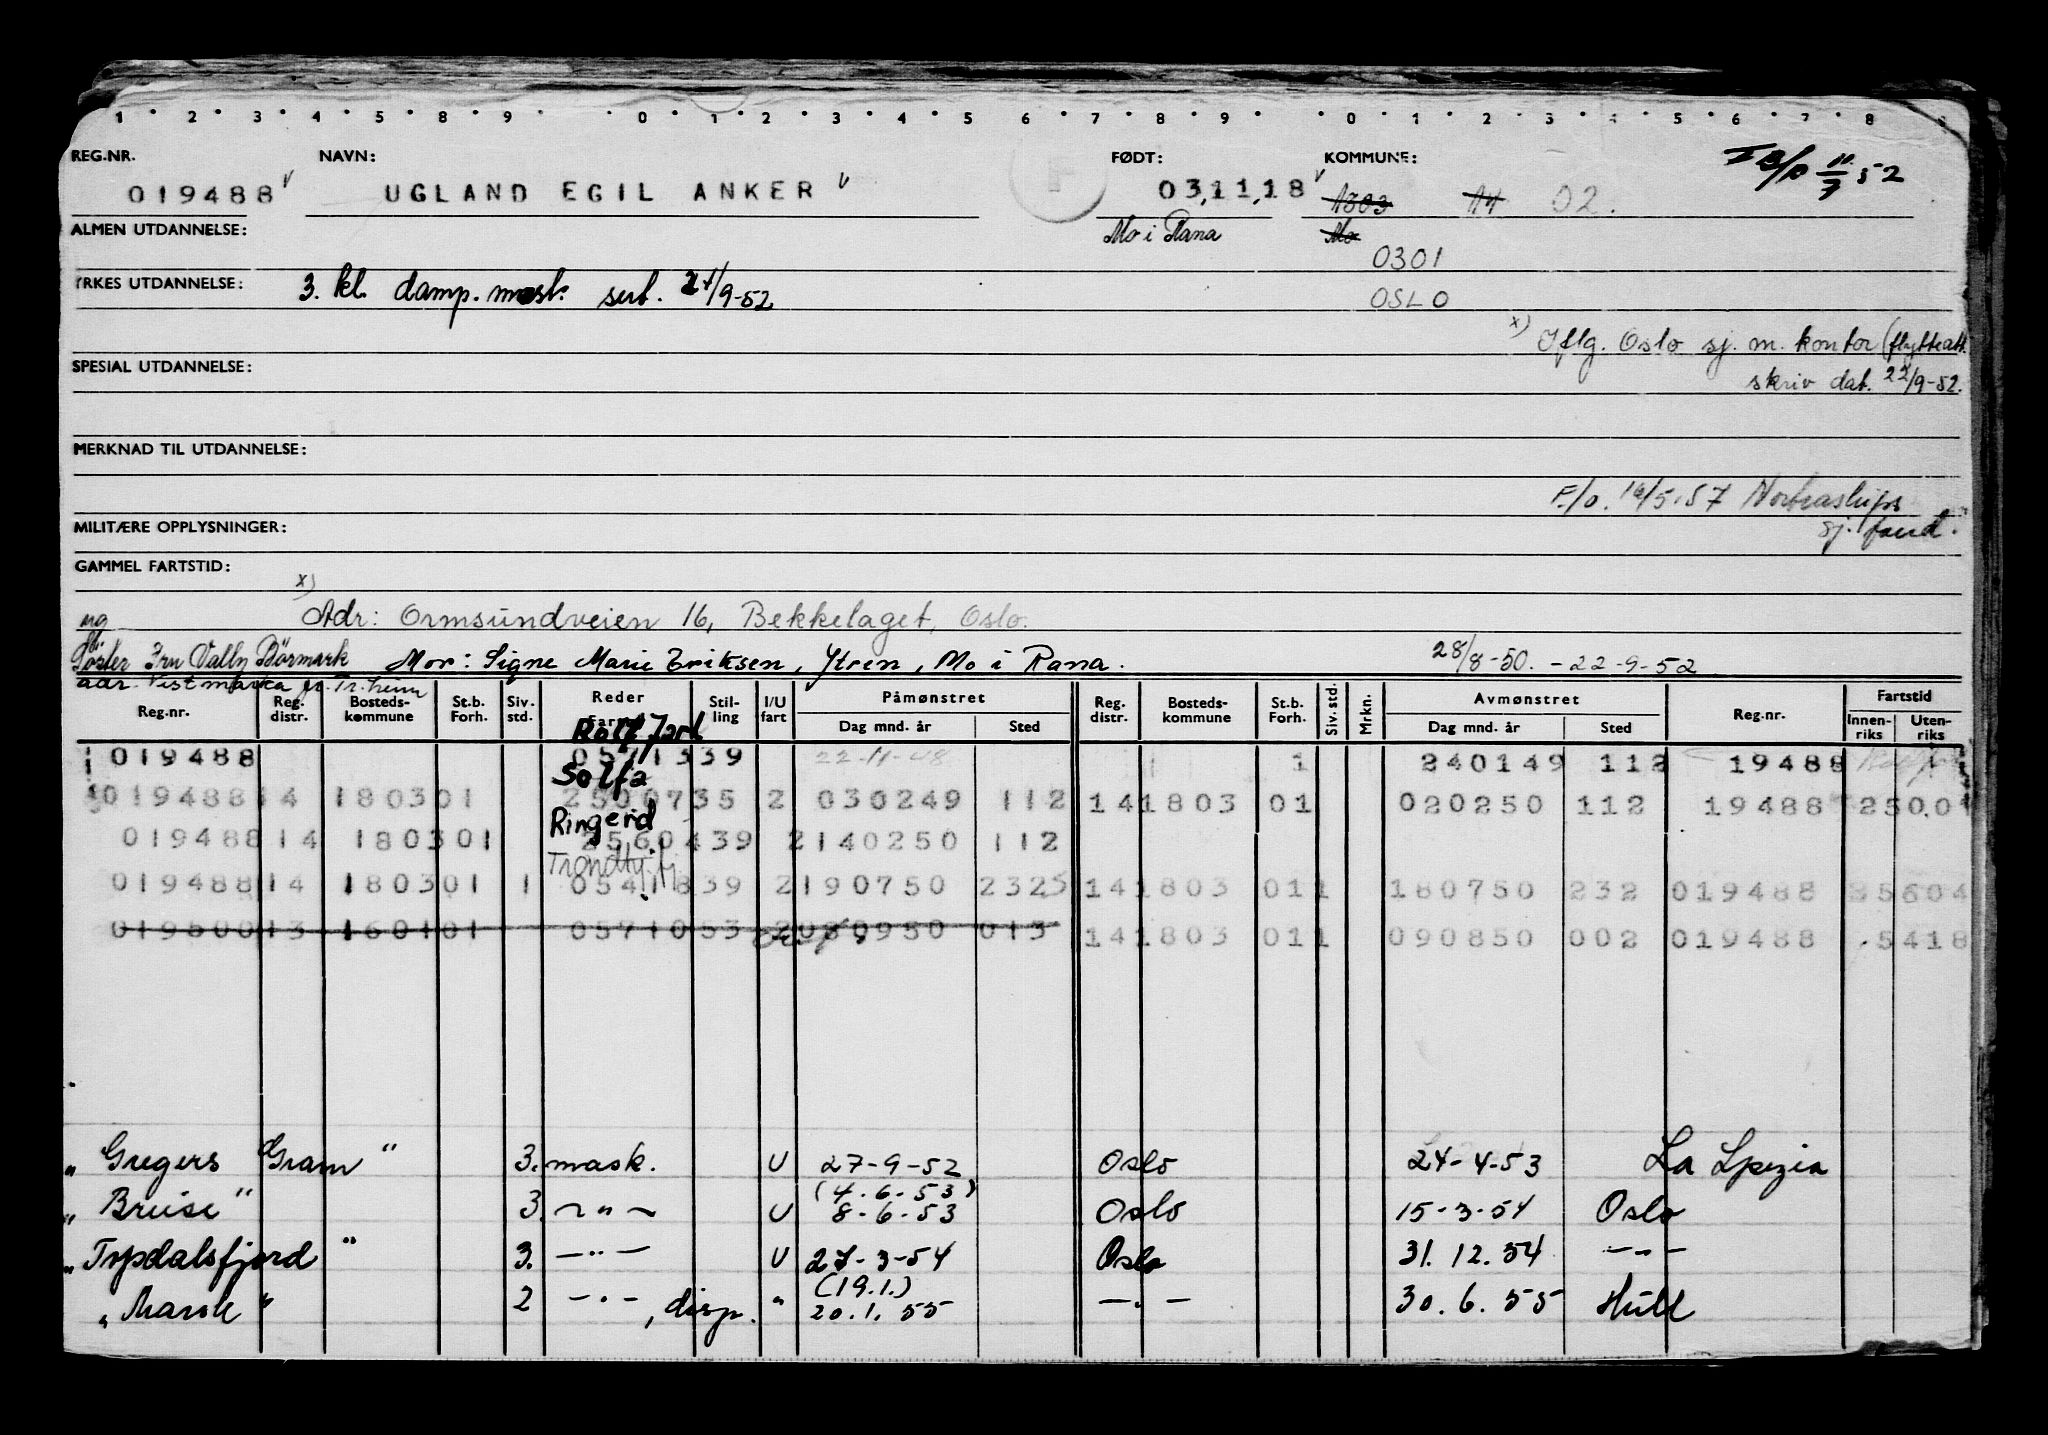 1 · 2 · 3 · 4 · 5 · 8 · 9 · · 0 · 1 · 2 · 3 · 4 · 5 6 · 7 · 8 · 9 · · 0 · 1 · 2 · 3 · 4 · 5 · 6 · 7 · 8
REG.NR. NAVN: FØDT: KOMMUNE:
019488 UGLAND EGIL ANKER 03,11,18 1803 14 02.
ALMEN UTDANNELSE: Mo i Rana Mo
0301
YRKES UTDANNELSE: 3. kl. damp. mask. sert. 24/9-52 OSLO
x) Iflg. Oslo sj. m. kontor (flytteatt.
SPESIAL UTDANNELSE: skriv dat. 22/9-52.
MERKNAD TIL UTDANNELSE:
F./o. 16/5.57 Nortraships
MILITÆRE OPPLYSNINGER: sj. fond.
GAMMEL FARTSTID:
x) Adr: Ormsundveien 16, Bekkelaget, Oslo.
Søster Fru Vally Börmark Mor: Signe Marie Eriksen, Ytren, Mo i Rana. 28/8-50. - 22-9-52
adr. Vestmarka pr. Tr.heim
Reg.nr. Reg. distr. Bosteds- kommune St.b. Forh. Siv. std. Reder Stil- ling I/U fart Påmønstret Dag mnd. år Sted Reg. distr. Bosteds- kommune St.b. Forh. Siv. std. Mrkn. Avmønstret Dag mnd. år Sted Reg.nr. Fartstid Innen- riks Uten- riks
Rolf Jarl
019488 0571339 22-11-48 1 240149 112 19488
Solfa
019488 14 1803 01 2500735 2 030249 112 14 1803 01 020250 112 19488
Ringerid
019488 14 1803 01 2560439 2 140250 112
Trondhj.fj.
019488 14 1803 01 1 0541839 2 190750 232 14 1803 01 1 180750 232 019488
019500 13 1601 01 0571053 2 080950 013 14 1803 01 1 090850 002 019488 5418
" Gregers Gram " 3. mask. U 27-9-52 Oslo 24-4-53 La Spezia
(4.6.53)
" Breise " 3. - " - U 8-6-53 Oslo 15-3-54 Oslo
" Typdalsfjord " 3. - " - U 27-3-54 Oslo 31.12.54 - " -
(19.1.)
" Marsk " 2 - " -, disp. " 20.1.55 - " - 30.6.55 Hull